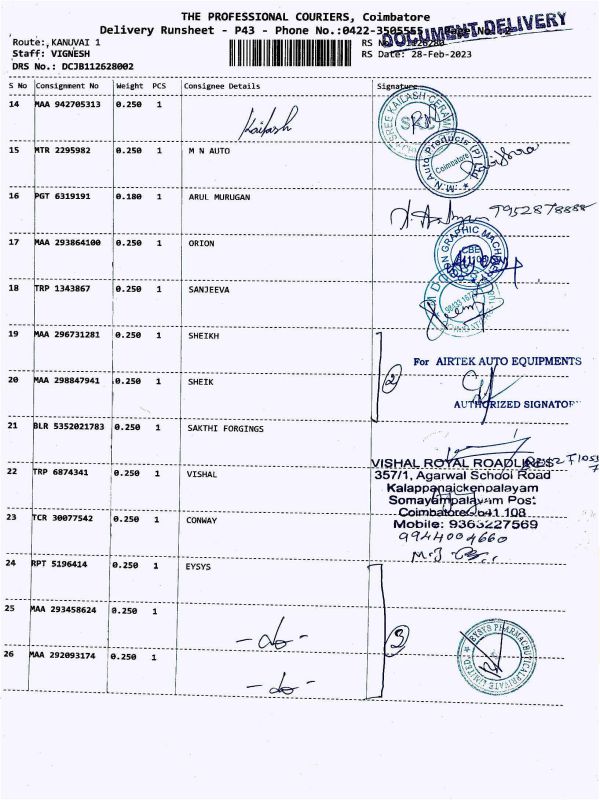 THE PROFESSIONAL COURIERS, Coimbatore
DOCUMENT DELIVERY
Delivery Runsheet - P43 - Phone No.:0422-3505555
Route:,KANUVAI 1
Staff: VIGNESH
RS Date: 28-Feb-2023
DRS No.: DCJB112628002
S No Consignment No Weight PCS Consignee Details Signature
14 MAA 942705313 0.250 1 Kailash
SREE KAILASH CERAMI
15 MTR 2295982 0.250 1 M N AUTO
M.N. Auto Products (P) Ltd Coimbatore
16 PGT 6319191 0.180 1 ARUL MURUGAN 7952878888
17 MAA 293864100 0.250 1 ORION
GRAPHIC MACHIN
CBE
18 TRP 1343867 0.250 1 SANJEEVA
19 MAA 296731281 0.250 1 SHEIKH
For AIRTEK AUTO EQUIPMENTS
20 MAA 298847941 0.250 1 SHEIK 2
AUTHORIZED SIGNATOR
21 BLR 5352021783 0.250 1 SAKTHI FORGINGS
22 TRP 6874341 0.250 1 VISHAL
VISHAL ROYAL ROADLINES
357/1, Agarwal School Road
Kalappanaickenpalayam
Somayampalayam Post
Coimbatore-641 108
Mobile: 9363227569
23 TCR 30077542 0.250 1 CONWAY
9944004660
24 RPT 5196414 0.250 1 EYSYS
25 MAA 293458624 0.250 1 -do- 3
EYSYS PHARMACEUTICAL PRIVATE LIMITED
26 MAA 292093174 0.250 1 -do-